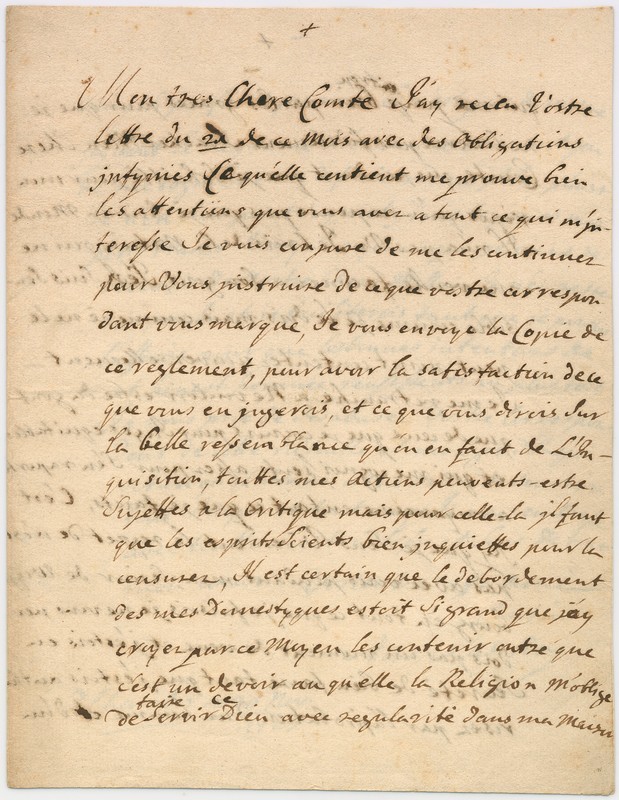 +
Mon tres Chere Comte J'ay receu Vostre
lettre du 22 de ce Mois avec des Obligations
jntymes Ce qu'elle contient me prouve bien
les attentions que vous avez a tout ce qui m'jn-
teresse Je vous conjure de me les continuer
pour Vous jnstruire de ce que vostre correspon
dant vous marque, Je vous envoye la Copie de
ce reglement, pour avoir la satisfaction de ce
que vous en jugerois, et ce que vous dirois sur
la belle ressemblance qu'on en faut de L'jn-
quisition, touttes mes Actions peuvents-estre
Sujettes a la Critique mais pour celle-la jl faut
que les esprits Soients bien jnquiettes pour la
censurer, Il est certain que le debordement
des mes Domestyques estoit Si grand que j'ay
croyez par ce Moyen les contenir outré que
c'est un devoir au qu'elle la Religion M'oblige
faire ce
de Servir Dieu avec regularité dans ma Maison